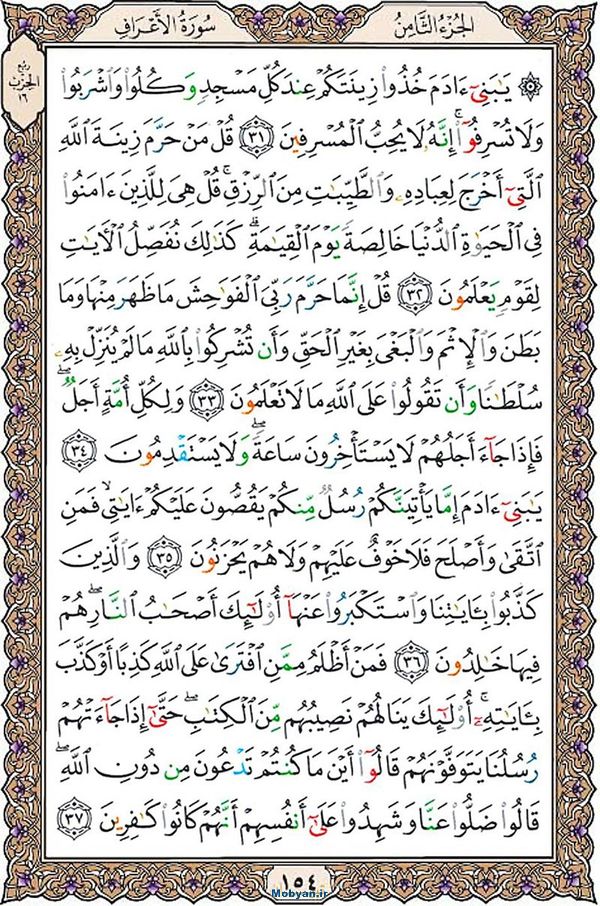 الجُزْءُ الثَّامِنُ
سُورَةُ الأَعْرَافِ
ربع
الحزب
١٦
۞ يَـٰبَنِىٓ ءَادَمَ خُذُوا۟ زِينَتَكُمْ عِندَ كُلِّ مَسْجِدٍ وَكُلُوا۟ وَٱشْرَبُوا۟
وَلَا تُسْرِفُوٓا۟ ۚ إِنَّهُۥ لَا يُحِبُّ ٱلْمُسْرِفِينَ ٣١ قُلْ مَنْ حَرَّمَ زِينَةَ ٱللَّهِ
ٱلَّتِىٓ أَخْرَجَ لِعِبَادِهِۦ وَٱلطَّيِّبَـٰتِ مِنَ ٱلرِّزْقِ ۚ قُلْ هِىَ لِلَّذِينَ ءَامَنُوا۟
فِى ٱلْحَيَوٰةِ ٱلدُّنْيَا خَالِصَةً يَوْمَ ٱلْقِيَـٰمَةِ ۗ كَذَٰلِكَ نُفَصِّلُ ٱلْـَٔايَـٰتِ
لِقَوْمٍ يَعْلَمُونَ ٣٢ قُلْ إِنَّمَا حَرَّمَ رَبِّىَ ٱلْفَوَٰحِشَ مَا ظَهَرَ مِنْهَا وَمَا
بَطَنَ وَٱلْإِثْمَ وَٱلْبَغْىَ بِغَيْرِ ٱلْحَقِّ وَأَن تُشْرِكُوا۟ بِٱللَّهِ مَا لَمْ يُنَزِّلْ بِهِۦ
سُلْطَـٰنًا وَأَن تَقُولُوا۟ عَلَى ٱللَّهِ مَا لَا تَعْلَمُونَ ٣٣ وَلِكُلِّ أُمَّةٍ أَجَلٌ ۖ
فَإِذَا جَآءَ أَجَلُهُمْ لَا يَسْتَأْخِرُونَ سَاعَةً ۖ وَلَا يَسْتَقْدِمُونَ ٣٤
يَـٰبَنِىٓ ءَادَمَ إِمَّا يَأْتِيَنَّكُمْ رُسُلٌ مِّنكُمْ يَقُصُّونَ عَلَيْكُمْ ءَايَـٰتِى ۙ فَمَنِ
ٱتَّقَىٰ وَأَصْلَحَ فَلَا خَوْفٌ عَلَيْهِمْ وَلَا هُمْ يَحْزَنُونَ ٣٥ وَٱلَّذِينَ
كَذَّبُوا۟ بِـَٔايَـٰتِنَا وَٱسْتَكْبَرُوا۟ عَنْهَآ أُو۟لَـٰٓئِكَ أَصْحَـٰبُ ٱلنَّارِ ۖ هُمْ
فِيهَا خَـٰلِدُونَ ٣٦ فَمَنْ أَظْلَمُ مِمَّنِ ٱفْتَرَىٰ عَلَى ٱللَّهِ كَذِبًا أَوْ كَذَّبَ
بِـَٔايَـٰتِهِۦٓ ۚ أُو۟لَـٰٓئِكَ يَنَالُهُمْ نَصِيبُهُم مِّنَ ٱلْكِتَـٰبِ ۖ حَتَّىٰٓ إِذَا جَآءَتْهُمْ
رُسُلُنَا يَتَوَفَّوْنَهُمْ قَالُوٓا۟ أَيْنَ مَا كُنتُمْ تَدْعُونَ مِن دُونِ ٱللَّهِ ۖ
قَالُوا۟ ضَلُّوا۟ عَنَّا وَشَهِدُوا۟ عَلَىٰٓ أَنفُسِهِمْ أَنَّهُمْ كَانُوا۟ كَـٰفِرِينَ ٣٧
١٥٤
Mobyan.ir